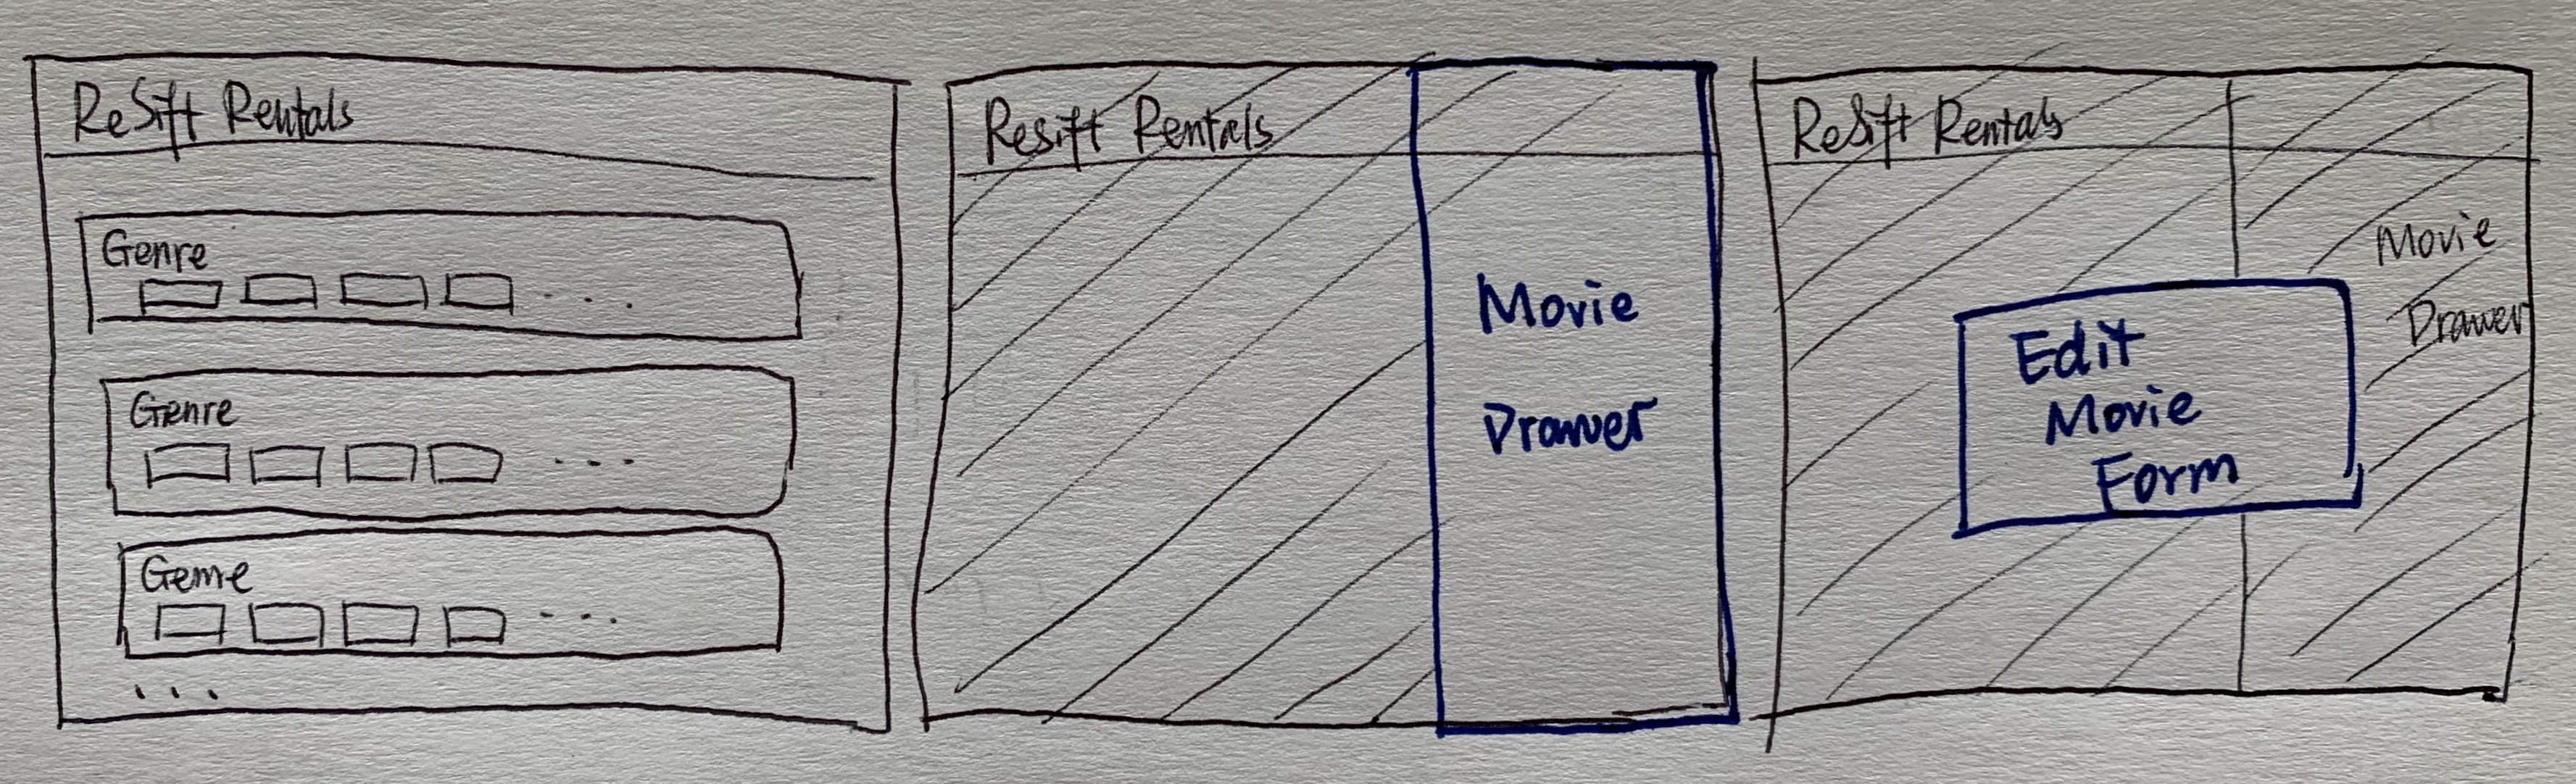 ReSift Rentals
Genre
. . .
Genre
. . .
Genre
. . .
. . .
Resift Rentals
Movie
Drawer
ReSift Rentals
Movie
Drawer
Edit
Movie
Form